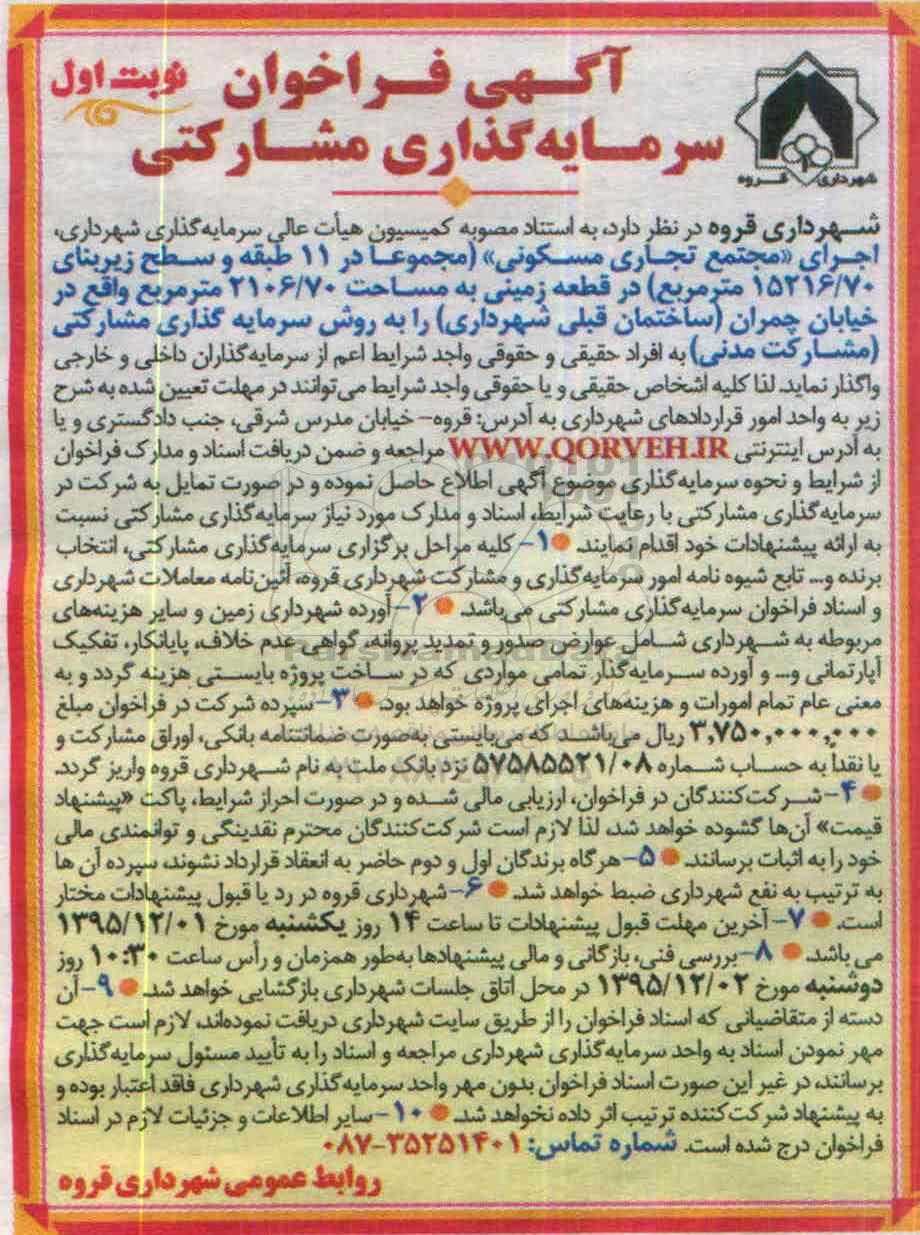 آگهی فراخوان
سرمایه‌گذاری مشارکتی
نوبت اول
شهرداری قروه
شهرداری قروه در نظر دارد، به استناد مصوبه کمیسیون هیأت عالی سرمایه‌گذاری شهرداری،
اجرای «مجتمع تجاری مسکونی» (مجموعا در ۱۱ طبقه و سطح زیربنای
۱۵۲۱۶/۷۰ مترمربع) در قطعه زمینی به مساحت ۲۱۰۶/۷۰ مترمربع واقع در
خیابان چمران (ساختمان قبلی شهرداری) را به روش سرمایه گذاری مشارکتی
(مشارکت مدنی) به افراد حقیقی و حقوقی واجد شرایط اعم از سرمایه‌گذاران داخلی و خارجی
واگذار نماید. لذا کلیه اشخاص حقیقی و یا حقوقی واجد شرایط می‌توانند در مهلت تعیین شده به شرح
زیر به واحد امور قراردادهای شهرداری به آدرس: قروه- خیابان مدرس شرقی، جنب دادگستری و یا
به آدرس اینترنتی WWW.QORVEH.IR مراجعه و ضمن دریافت اسناد و مدارک فراخوان
از شرایط و نحوه سرمایه‌گذاری موضوع آگهی اطلاع حاصل نموده و در صورت تمایل به شرکت در
سرمایه‌گذاری مشارکتی با رعایت شرایط، اسناد و مدارک مورد نیاز سرمایه‌گذاری مشارکتی نسبت
به ارائه پیشنهادات خود اقدام نمایند. ۱- کلیه مراحل برگزاری سرمایه‌گذاری مشارکتی، انتخاب
برنده و... تابع شیوه نامه امور سرمایه‌گذاری و مشارکت شهرداری قروه، آئین‌نامه معاملات شهرداری
و اسناد فراخوان سرمایه‌گذاری مشارکتی می‌باشد. ۲- آورده شهرداری زمین و سایر هزینه‌های
مربوطه به شهرداری شامل عوارض صدور و تمدید پروانه، گواهی عدم خلاف، پایانکار، تفکیک
آپارتمانی و... و آورده سرمایه‌گذار تمامی مواردی که در ساخت پروژه بایستی هزینه گردد و به
معنی عام تمام امورات و هزینه‌های اجرای پروژه خواهد بود. ۳- سپرده شرکت در فراخوان مبلغ
۳,۷۵۰,۰۰۰,۰۰۰ ریال می‌باشد که می‌بایستی به‌صورت ضمانتنامه بانکی، اوراق مشارکت و
یا نقداً به حساب شماره ۵۷۵۸۵۵۲۱/۰۸ نزد بانک ملت به نام شهرداری قروه واریز گردد.
۴- شرکت‌کنندگان در فراخوان، ارزیابی مالی شده و در صورت احراز شرایط، پاکت «پیشنهاد
قیمت» آن‌ها گشوده خواهد شد، لذا لازم است شرکت‌کنندگان محترم نقدینگی و توانمندی مالی
خود را به اثبات برسانند. ۵- هرگاه برندگان اول و دوم حاضر به انعقاد قرارداد نشوند، سپرده آن ها
به ترتیب به نفع شهرداری ضبط خواهد شد. ۶- شهرداری قروه در رد یا قبول پیشنهادات مختار
است. ۷- آخرین مهلت قبول پیشنهادات تا ساعت ۱۴ روز یکشنبه مورخ ۱۳۹۵/۱۲/۰۱
می باشد. ۸- بررسی فنی، بازرگانی و مالی پیشنهادها به‌طور همزمان و رأس ساعت ۱۰:۳۰ روز
دوشنبه مورخ ۱۳۹۵/۱۲/۰۲ در محل اتاق جلسات شهرداری بازگشایی خواهد شد. ۹- آن
دسته از متقاضیانی که اسناد فراخوان را از طریق سایت شهرداری دریافت نموده‌اند، لازم است جهت
مهر نمودن اسناد به واحد سرمایه‌گذاری شهرداری مراجعه و اسناد را به تأیید مسئول سرمایه‌گذاری
برسانند، در غیر این صورت اسناد فراخوان بدون مهر واحد سرمایه‌گذاری شهرداری فاقد اعتبار بوده و
به پیشنهاد شرکت‌کننده ترتیب اثر داده نخواهد شد. ۱۰- سایر اطلاعات و جزئیات لازم در اسناد
فراخوان درج شده است. شماره تماس: ۳۵۲۵۱۴۰۱-۰۸۷
روابط عمومی شهرداری قروه